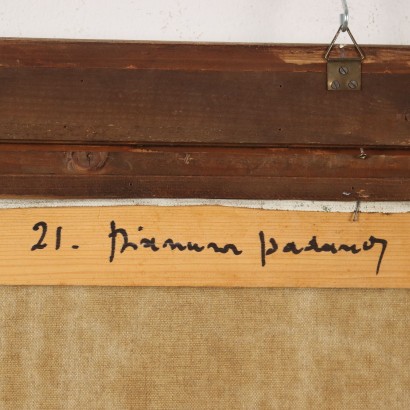 21. Pianura padana